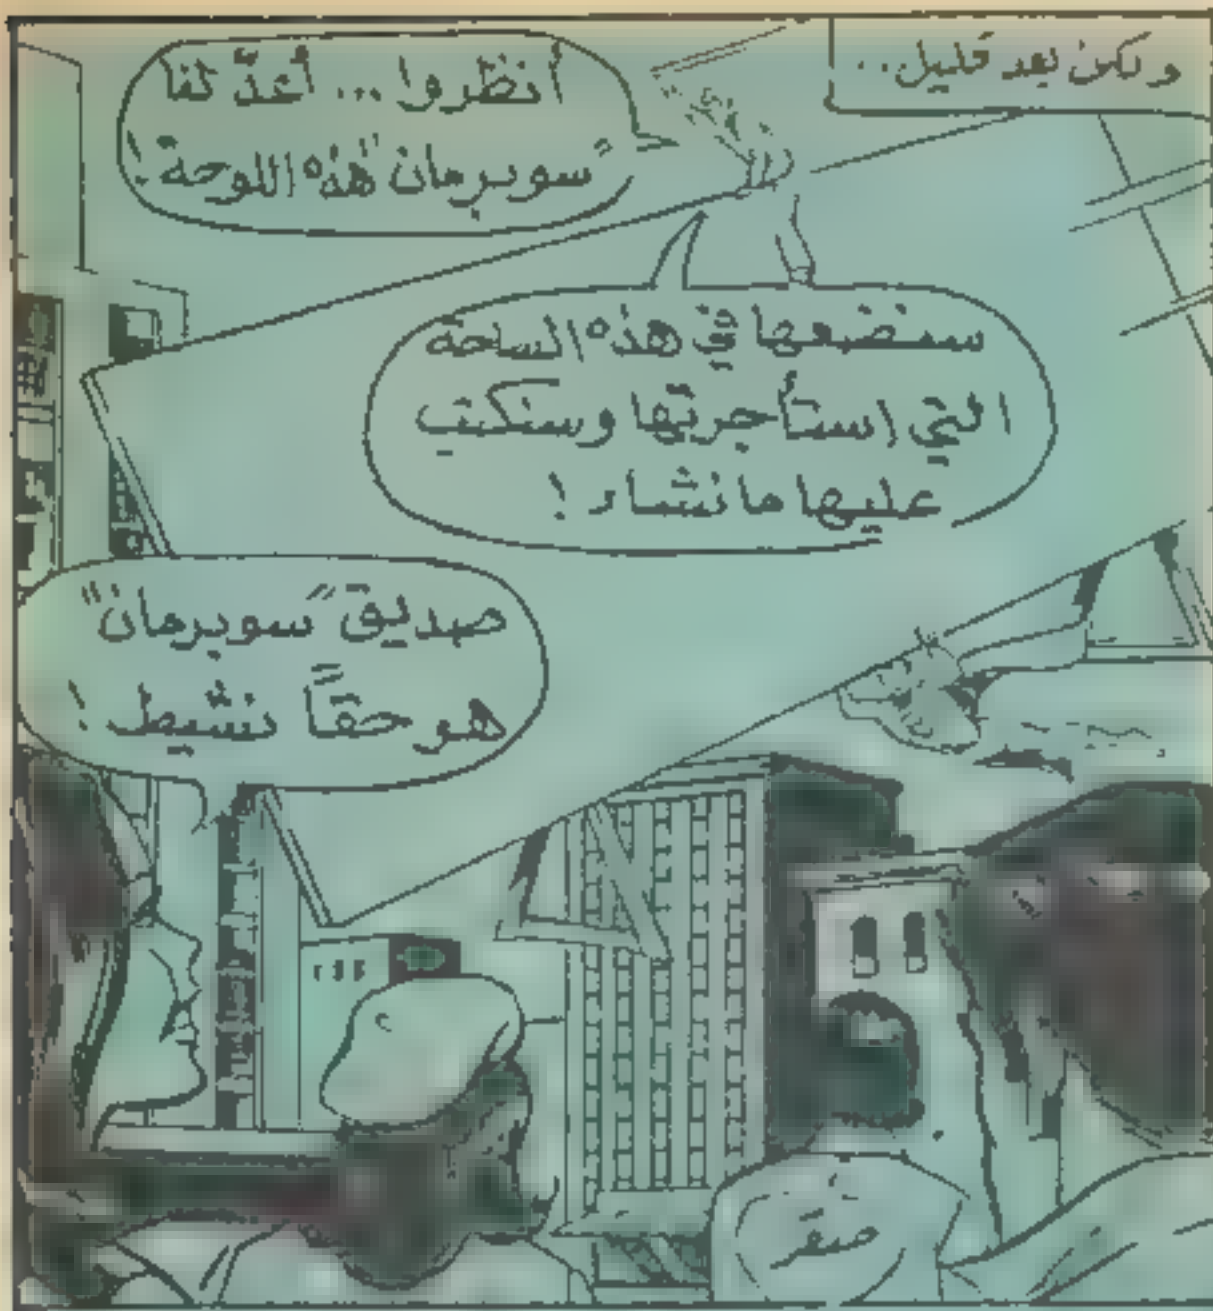 ولكن بعد قليل..
أنظروا... أعدّ لنا
"سوبرمان" هذه اللوحة!
سنضعها في هذه الساحة
التي إستأجرتها وسنكتب
عليها ما نشاء!
صديق "سوبرمان"
هو حقاً نشيط!
صقر